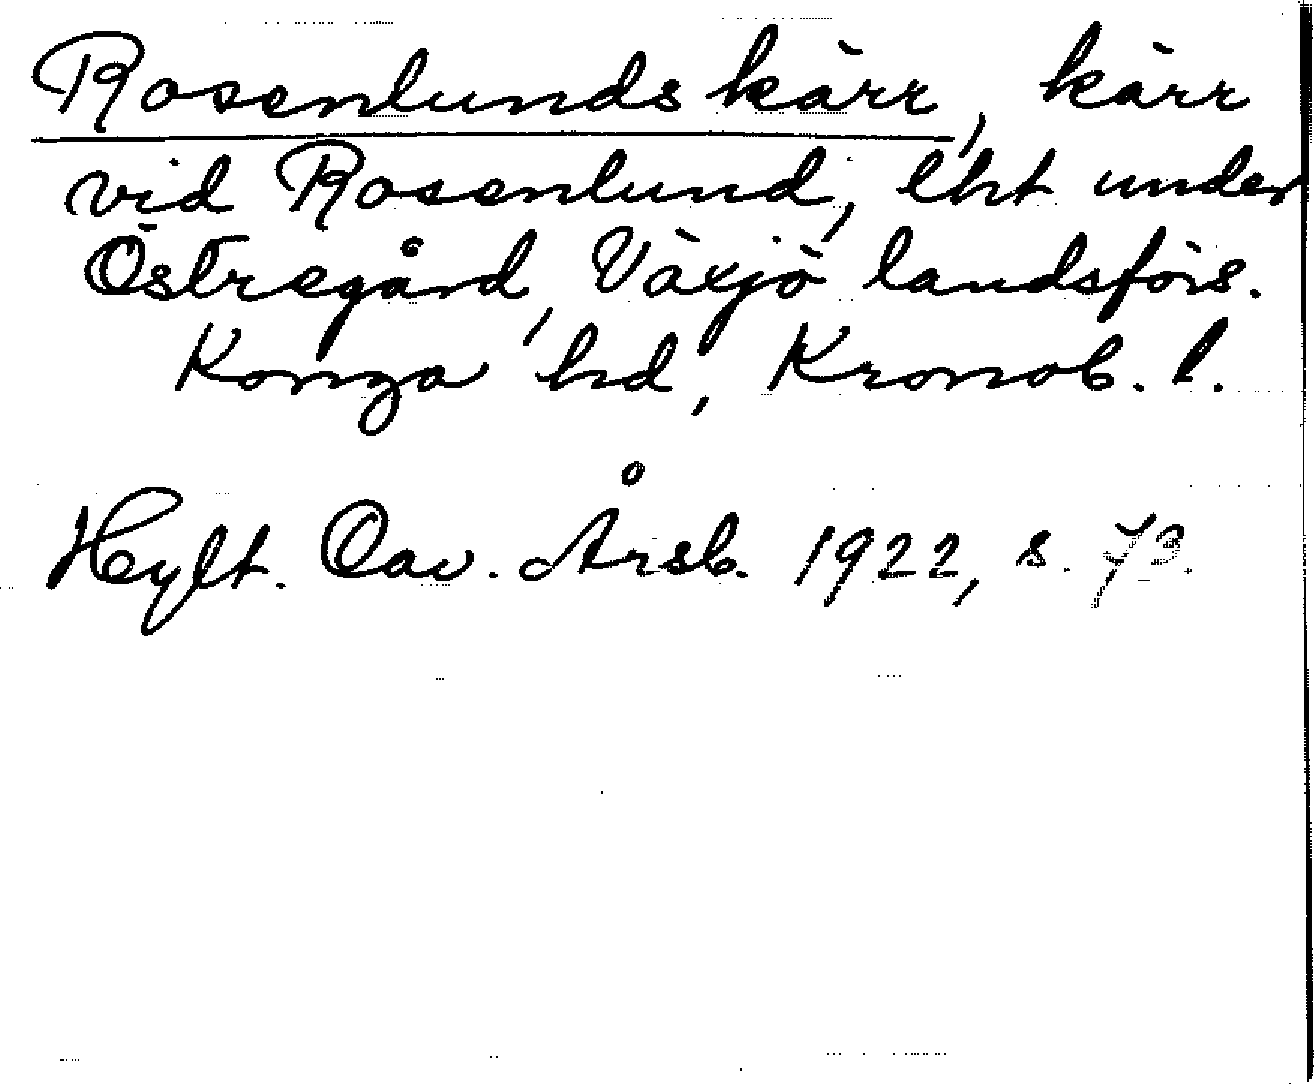 Rosenlundskärr, kärr
vid Rosenlund, lht under
Östregård, Växjö landsförs.
Konga hd, Kronob. l.
Hylt. Cav. Årsb. 1922, s. 73.